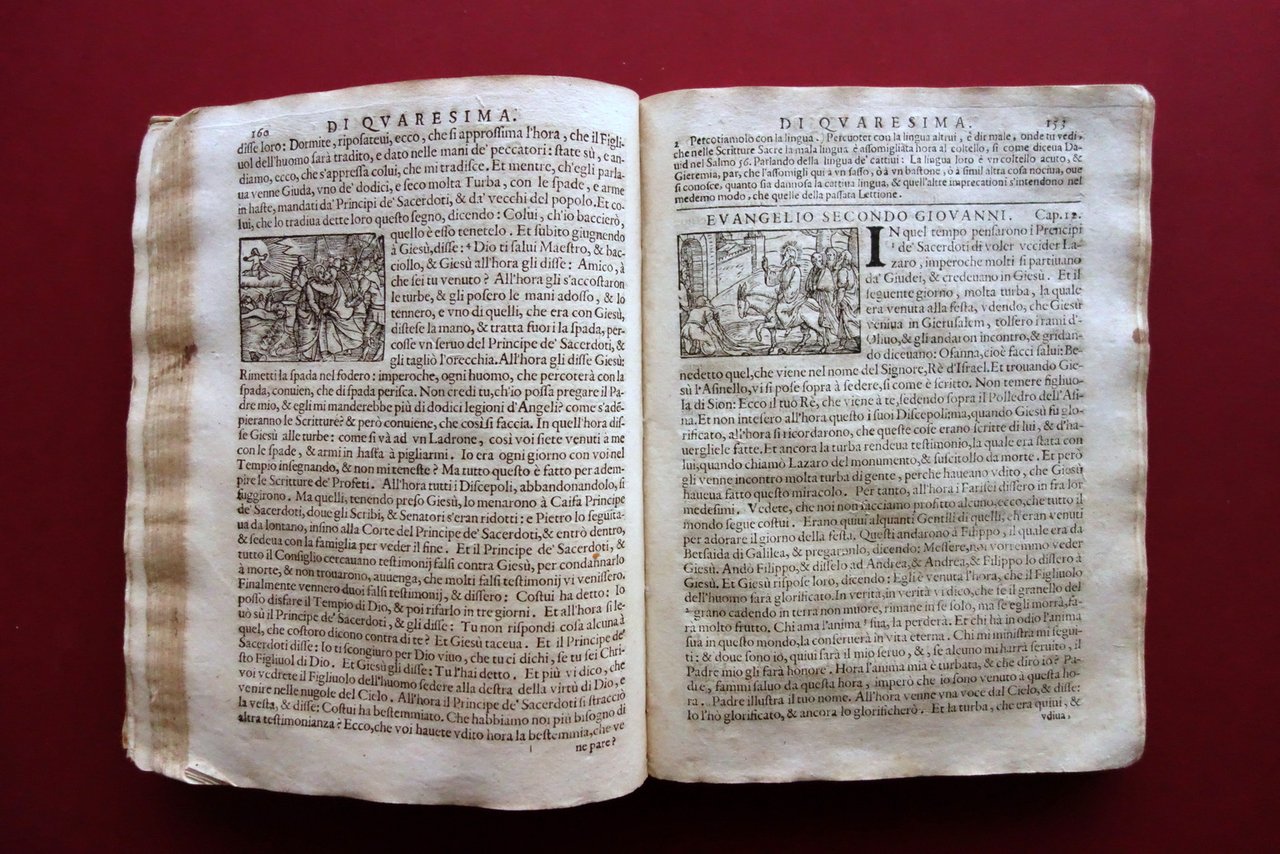 160
DI QVARESIMA.
disse loro: Dormite, riposateui, ecco, che si approssima l'hora, che il Figli-
uol dell'huomo sarà tradito, e dato nelle mani de' peccatori: state sù, e an-
diamo, ecco, che s'appressa colui, che mi tradisce. Et mentre, ch'egli parla-
ua venne Giuda, vno de' dodici, e seco molta Turba, con le spade, e arme
in haste, mandati da' Principi de' Sacerdoti, & da' vecchi del popolo. Et co-
lui, che lo tradiua dette loro questo segno, dicendo: Colui, ch'io baccierò,
quello è esso tenetelo. Et subito giugnendo
à Giesù, disse: Dio ti salui Maestro, & bac-
ciollo, & Giesù all'hora gli disse: Amico, à
che sei tu venuto? All'hora gli s'accostaron
le turbe, & gli posero le mani adosso, & lo
tennero, e vno di quelli, che era con Giesù,
distese la mano, & tratta fuori la spada, per-
cosse vn seruo del Principe de' Sacerdoti, &
gli tagliò l'orecchia. All'hora gli disse Giesù:
Rimetti la spada nel fodero: imperoche, ogni huomo, che percoterà con la
spada, conuien, che di spada perisca. Non credi tu, ch'io possa pregare il Pa-
dre mio, & egli mi manderebbe più di dodici legioni d'Angeli? come s'adē-
pieranno le Scritture? & però conuiene, che così si faccia. In quell'hora dis-
se Giesù alle turbe: come si và ad vn Ladrone, così voi siete venuti à me
con le spade, & armi in hasta à pigliarmi. Io era ogni giorno con voi nel
Tempio insegnando, & non mi teneste? Ma tutto questo è fatto per adem-
pire le Scritture de' Profeti. All'hora tutti i Discepoli, abbandonandolo, si
fuggirono. Ma quelli, tenendo preso Giesù, lo menarono à Caifa Principe
de' Sacerdoti, doue gli Scribi, & Senatori s'eran ridotti: e Pietro lo seguita-
ua da lontano, insino alla Corte del Principe de' Sacerdoti, & entrò dentro,
& sedeua con la famiglia per veder il fine. Et il Principe de' Sacerdoti, &
tutto il Consiglio cercauano testimonij falsi contra Giesù, per condannarlo
à morte, & non trouarono, auuenga, che molti falsi testimonij vi venissero.
Finalmente vennero duoi falsi testimonij, & dissero: Costui ha detto: Io
posso disfare il Tempio di Dio, & poi rifarlo in tre giorni. Et all'hora si le-
uò sù il Principe de' Sacerdoti, & gli disse: Tu non rispondi cosa alcuna à
quel, che costoro dicono contra di te? Et Giesù taceua. Et il Principe de'
Sacerdoti disse: Io ti scongiuro per Dio viuo, che tu ci dichi, se tu sei Chri-
sto Figliuol di Dio. Et Giesù gli disse: Tu l'hai detto. Et più vi dico, che
voi vedrete il Figliuolo dell'huomo sedere alla destra della virtù di Dio, e
venire nelle nugole del Cielo. All'hora il Principe de' Sacerdoti si stracciò
la vesta, & disse: Costui ha bestemmiato. Che habbiamo noi più bisogno di
altra testimonianza? Ecco, che voi hauete vdito hora la bestemmia, che ve
ne pare?
DI QVARESIMA.
153
2 Percotiamolo con la lingua.) Percuoter con la lingua altrui, è dir male, onde tu vedi,
che nelle Scritture Sacre la mala lingua è assomigliata hora al coltello, si come diceua Da-
uid nel Salmo 56. Parlando della lingua de' cattiui: La lingua loro è vn coltello acuto, &
Gieremia, par, che l'assomigli qui à vn sasso, ò à vn bastone, ò à simil altra cosa nociua, oue
si conosce, quanto sia dannosa la cattiua lingua, & quell'altre imprecationi s'intendono nel
medemo modo, che quelle della passata Lettione.
EVANGELIO SECONDO GIOVANNI. Cap. 12.
IN quel tempo pensarono i Prencipi
de' Sacerdoti di voler vccider La-
zaro, imperoche molti si partiuano
da' Giudei, & credeuano in Giesù. Et il
seguente giorno, molta turba, la quale
era venuta alla festa, vdendo, che Giesù
veniua in Gierusalem, tolsero i rami d'-
Oliuo, & gli andaron incontro, & gridan-
do diceuano: Osanna, cioè facci salui: Be-
nedetto quel, che viene nel nome del Signore, Rè d'Israel. Et trouando Gie-
sù l'Asinello, vi si pose sopra à sedere, si come è scritto. Non temere figliuo-
la di Sion: Ecco il tuo Rè, che viene à te, sedendo sopra il Polledro dell'Asi-
na. Et non intesero all'hora questo i suoi Discepoli: ma, quando Giesù fu glo-
rificato, all'hora si ricordarono, che queste cose erano scritte di lui, & d'ha-
uergliele fatte. Et ancora la turba rendeua testimonio, la quale era stata con
lui, quando chiamò Lazaro del monumento, & suscitollo da morte. Et però
gli venne incontro molta turba di gente, perche haueano vdito, che Giesù
haueua fatto questo miracolo. Per tanto, all'hora i Farisei dissero in fra lor
medesimi. Vedete, che noi non facciamo profitto alcuno: ecco, che tutto il
mondo segue costui. Erano quiui alquanti Gentili di quelli, ch'eran venuti
per adorare il giorno della festa, Questi andarono à Filippo, il quale era da
Betsaida di Galilea, & pregaronlo, dicendo: Messere, noi vorremmo veder
Giesù. Andò Filippo, & disselo ad Andrea, & Andrea, & Filippo lo dissero à
Giesù. Et Giesù rispose loro, dicendo: Egli è venuta l'hora, che il Figliuolo
dell'huomo sarà glorificato. In verità, in verità vi dico, che se il granello del
grano cadendo in terra non muore, rimane in se solo, ma se egli morrà, fa-
rà molto frutto. Chi ama l'anima sua, la perderà. Et chi ha in odio l'anima
sua in questo mondo, la conseruerà in vita eterna. Chi mi ministra mi segui-
ti: & doue sono iò, quiui sarà il mio seruo, &, se alcuno mi harrà seruito, il
Padre mio gli farà honore. Hora l'anima mia è turbata, & che dirò io? Pa-
dre, fammi saluo da questa hora, imperò che io sono venuto à questa ho-
ra. Padre illustra il tuo nome. All'hora venne vna voce dal Cielo, & disse:
Io l'hò glorificato, & ancora lo glorificherò. Et la turba, che era quiui, &
vdiua,